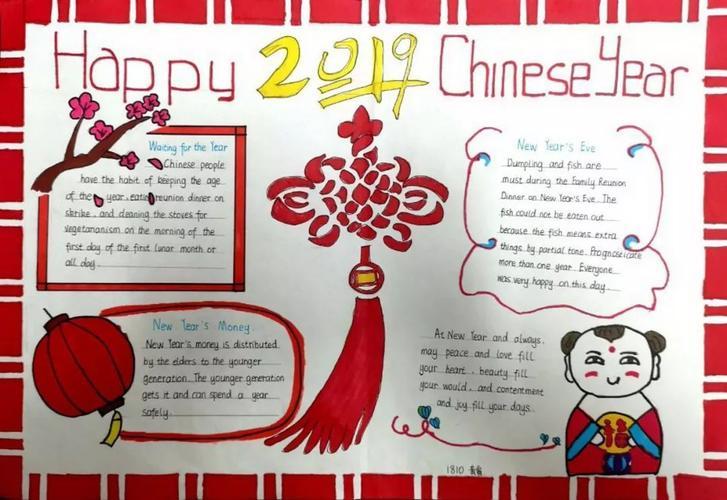 Happy 2019 Chinese Year
Waiting for the Year
Chinese people
have the habit of keeping the age
of the year, eating reunion dinner on
strike, and cleaning the stoves for
vegetarianism on the morning of the
first day of the first lunar month or
all day.
New Year's Eve
Dumpling and fish are
must during the Family Reunion
Dinner on New Year's Eve. The
fish could not be eaten out
because the fish means extra
things by partial tone. Prognosticate
more than one year. Everyone
was very happy on this day.
New Year's Money
New Year's money is distributed
by the elders to the younger
generation. The younger generation
gets it and can spend a year
safely.
At New Year and always,
may peace and love fill
your heart, beauty fill
your would, and contentment
and joy fill your days.
福
1810